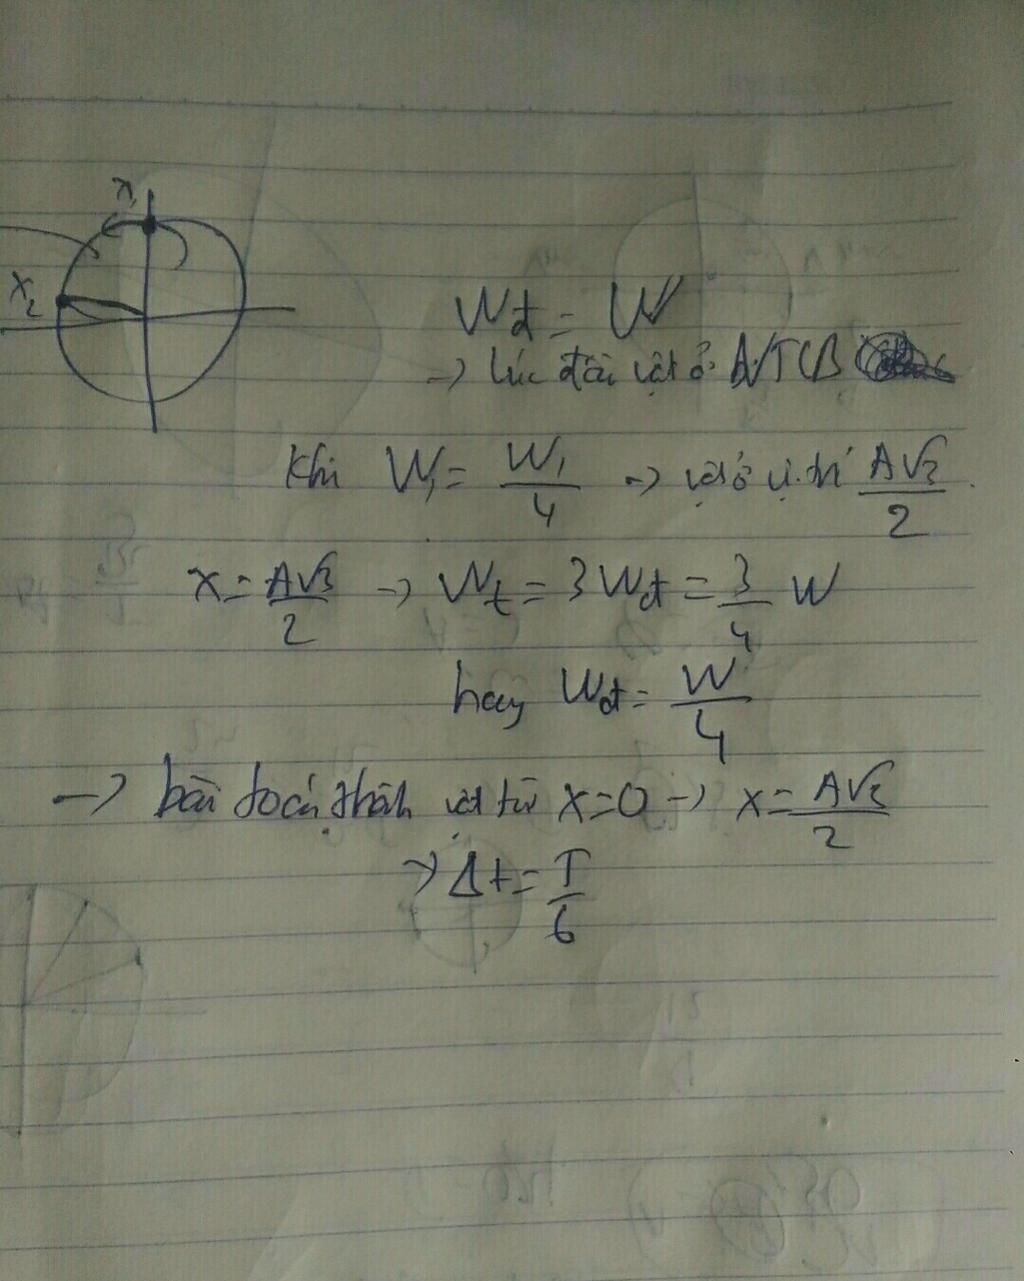 x₁
x₂
Wđ = W
→ lúc đầu vật ở VTCB
Khi W₁ = W₁/4 → vật ở v.trí A√3/2
x = A√3/2 → Wt = 3Wđ = 3/4 W
hay Wđ = W/4
→ bài toán thành vật từ x=0 → x = A√3/2
→ Δt = T/6